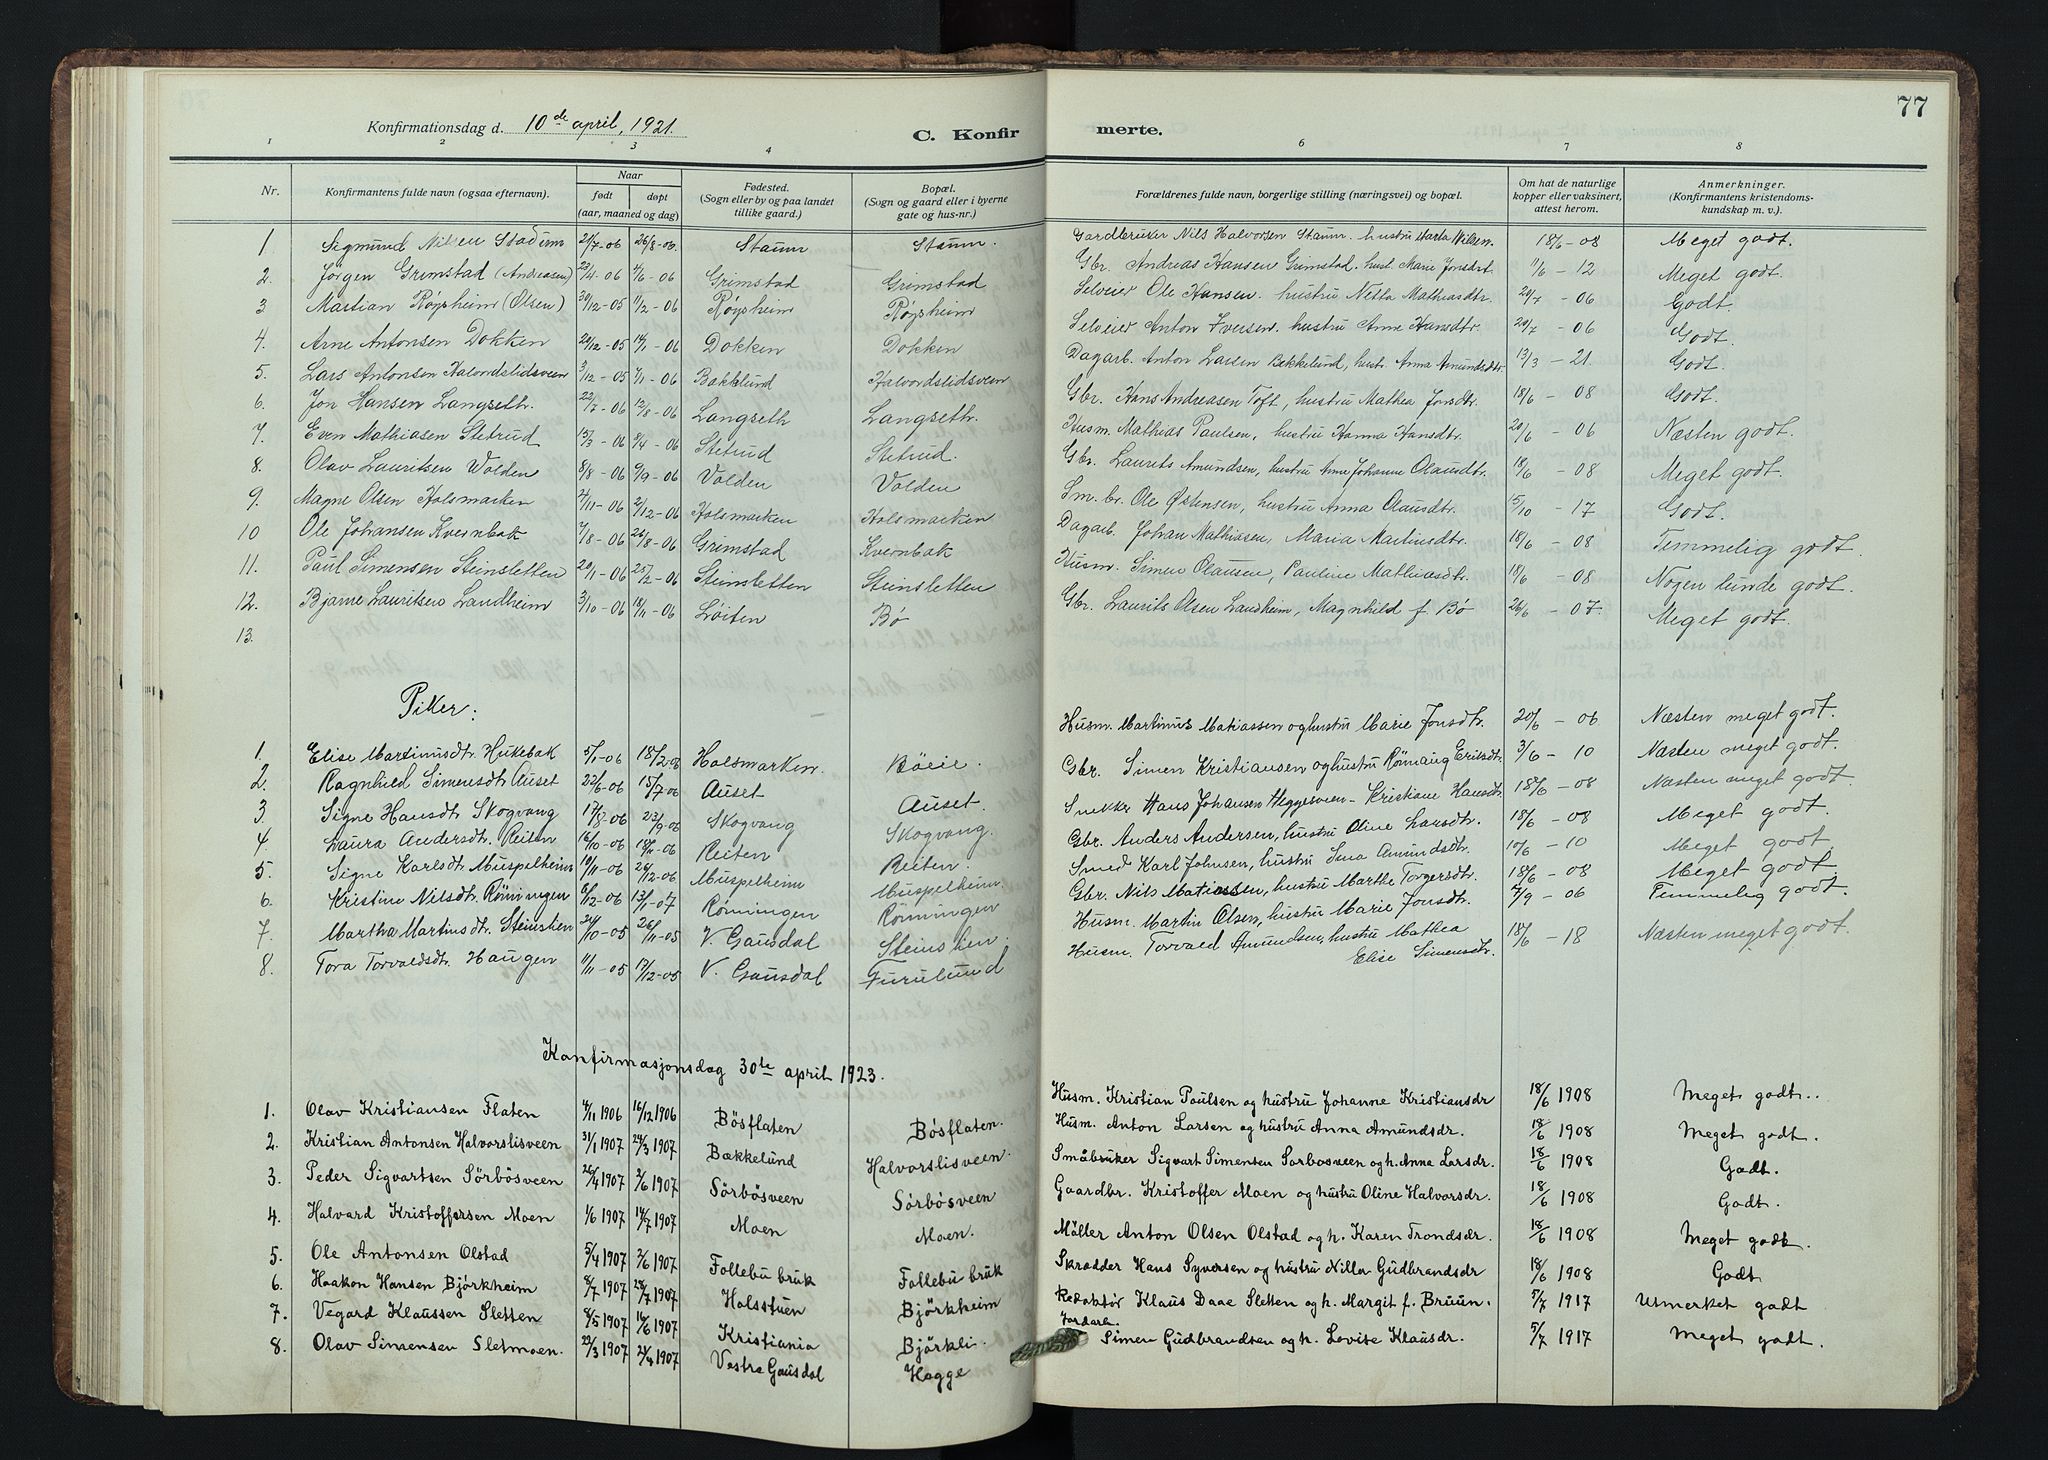 77
Konfirmationsdag d. 10de april, 1921.
C. Konfirmerte.
1 2 3 4 6 7 8
Nr. Konfirmantens fulde navn (ogsaa efternavn). Naar født døpt (aar, maaned og dag) Fødested. (Sogn eller by og paa landet tillike gaard.) Bopæl. (Sogn og gaard eller i byerne gate og hus-nr.) Forældrenes fulde navn, borgerlige stilling (næringsvei) og bopæl. Om hat de naturlige kopper eller vaksinert, attest herom. Anmerkninger. (Konfirmantens kristendomskundskap m. v.)
1 Sigmund Nilsen Staum 21/7-06 26/8-06 Staum Staum. Gardbruker Nils Halvorsen Staum. hustru Marta Nilsen. 18/6-08 Meget godt.
2. Jørgen Grimstad (Andreasen) 23/4-06 4/6-06 Grimstad Grimstad Gbr. Andreas Hansen Grimstad. hust. Marie Jonsdt 11/6-12 Meget godt.
3 Mastian Røysheim (Olsen) 30/12-05 11/2-06 Røysheim Røysheim Selveier Ole Hansen. hustru Netta Mathiasdtr. 20/7-06 Godt.
4. Arne Antonsen Dokken 20/12-05 14/1-06 Dokken Dokken Selveier Anton Iversen. hustru Anne Hansdtr. 20/7-06 Godt.
5. Lars Antonsen Halvordslidsveen 3/12-05 7/1-06 Bakkelund Halvordslidsveen Dagarb. Anton Larsen Bekkelund, hustr. Anna Amundsdtr. 13/3-21 Godt.
6. Jon Hansen Langseth. 22/7-06 12/8-06 Langseth Langseth. Gbr. Hans Andreasen Toft, hustru Mathea Jonsdtr. 18/6-08 Godt.
7. Even Mathiasen Stetrud 13/3-06 8/4-06 Stetrud Stetrud. Husm. Mathias Paulsen, hustru Hanna Hansdtr. 20/6-06 Næsten godt.
8. Olav Lauritsen Volden 8/8-06 9/9-06 Volden Volden Gbr. Laurits Amundsen, hustru Anne Johanne Olausdtr. 18/6-08 Meget godt.
9. Magne Olsen Holsmarken 4/11-06 2/12-06 Holsmarken Holsmarken Sm. br. Ole Østensen, hustru Anna Olausdtr. 15/10-17 Godt.
10 Ole Johansen Kvernbak 7/8-06 26/8-06 Grimstad Kvernbak Dagarb. Johan Mathiasen, Maria Martinsdtr. 18/6-08 Temmelig godt.
11. Paul Simensen Steinsletten 20/1-06 25/2-06 Steinsletten Steinsletten Husm. Simen Olausen, Pauline Mathiasdtr. 18/6-08 Nogen lunde godt.
12. Bjarne Lauritsen Landheim 3/10-06 18/11-06 Løiten Bø Gbr. Laurits Olsen Landheim, Magnhild f. Bö 26/6-07. Meget godt.
13.
Piker:
1. Elise Martinusdtr. Hukebak 5/1-06 18/2-06 Holsmarken. Böeie. Husm. Martinus Matiassen og hustru Marie Jonsdtr. 20/6-06 Næsten meget godt.
2. Ragnhild Simensdtr. Auset 22/6-06 15/7-06 Auset Auset. Gbr. Simen Kristiansen og hustru Rönnaug Eriksdtr. 3/6-10 Næsten meget godt.
3. Signe Hansdt. Skogvang 17/8-06 23/9-06 Skogvang Skogvang. Snekker Hans Johansen Heggesveen - Kristiane Hansdtr. 18/6-08 Næsten meget godt.
4. Laura Andersdtr. Reiten 16/10-06 18/11-06 Reiten Reiten. Gbr. Anders Andersen, hustru Oline Larsdtr. 18/6-08 Meget godt.
5 Signe Karlsdtr. Muspelheim 10/11-06 26/12-06 Muspelheim Muspelheim. Smed Karl Johnsen, hustru Ima Amundsdtr. 10/6-10 Meget godt.
6. Kristine Nilsdtr. Rönningen 6/12-06 13/1-07 Rönningen Rönningen Gbr. Nils Matiassen, hustru Marthe Torgersdtr. 18/6-08 Meget godt.
7. Martha Martinsdtr. Steinslien 24/10-05 26/11-05 V. Gausdal Steinslien. Husm. Martin Olsen, hustru Marie Jonsdtr. 4/9-06 Temmelig godt.
8. Tora Torvaldsdtr. Haugen 11/11-05 17/12-05 V. Gausdal Furulund Husm. Torvald Amundsen, hustru Mathea Elise Simensdtr. 18/6-18 Næsten meget godt.
Konfirmasjonsdag 30te april 1923.
1. Olav Kristiansen Flaten 4/11 1906 16/12 1906 Bösflaten Bösflaten. Husm. Kristian Paulsen og hustru Johanne Kristiansdr 18/6 1908 Meget godt.
2. Kristian Antonsen Halvorslisveen 31/1 1907 24/3 1907 Bækkelund Halvorslisveen. Husm. Anton Larsen og hustru Anna Amundsdr. 18/6 1908 Meget godt.
3. Peder Sigvartsen Sörbösveen 26/4 1907 2/6 1907 Sörbösveen Sörbösveen Småbruker Sigvart Simensen Sorbosveen og h. Anne Larsdr. 18/6 1908 Godt.
4. Halvard Kristoffersen Moen 1/6 1907 14/7 1907 Moen Moen. Gaardbr. Kristoffer Moen og hustru Oline Halvorsdr. 18/6 1908 Godt.
5. Ole Antonsen Olstad 5/4 1907 2/6 1907 Follebu bruk Follebu bruk Möller Anton Olsen Olstad og h. Karen Trondsdr. 18/6 1908 Meget godt.
6. Haakon Hansen Björkheim 8/7 1907 28/7 1907 Holsstuen Björkheim Skrædder Hans Syversen og hustru Nilla Gudbrandsdr 18/6 1908 Godt
7. Vegard Klaussen Sletten 8/5 1907 16/6 1907 Kristiania Björkli. Redaktör Klaus Daae Sletten og h. Margit f. Bruun. 5/7 1917 Utmerket godt
8. Olav Simensen Sletmoen. 22/3 1907 21/4 1907 Vestre Gausdal Hagge Jordarb. Simen Gudbrandsen og h. Lovise Klausdr. 5/7 1917 Meget godt.